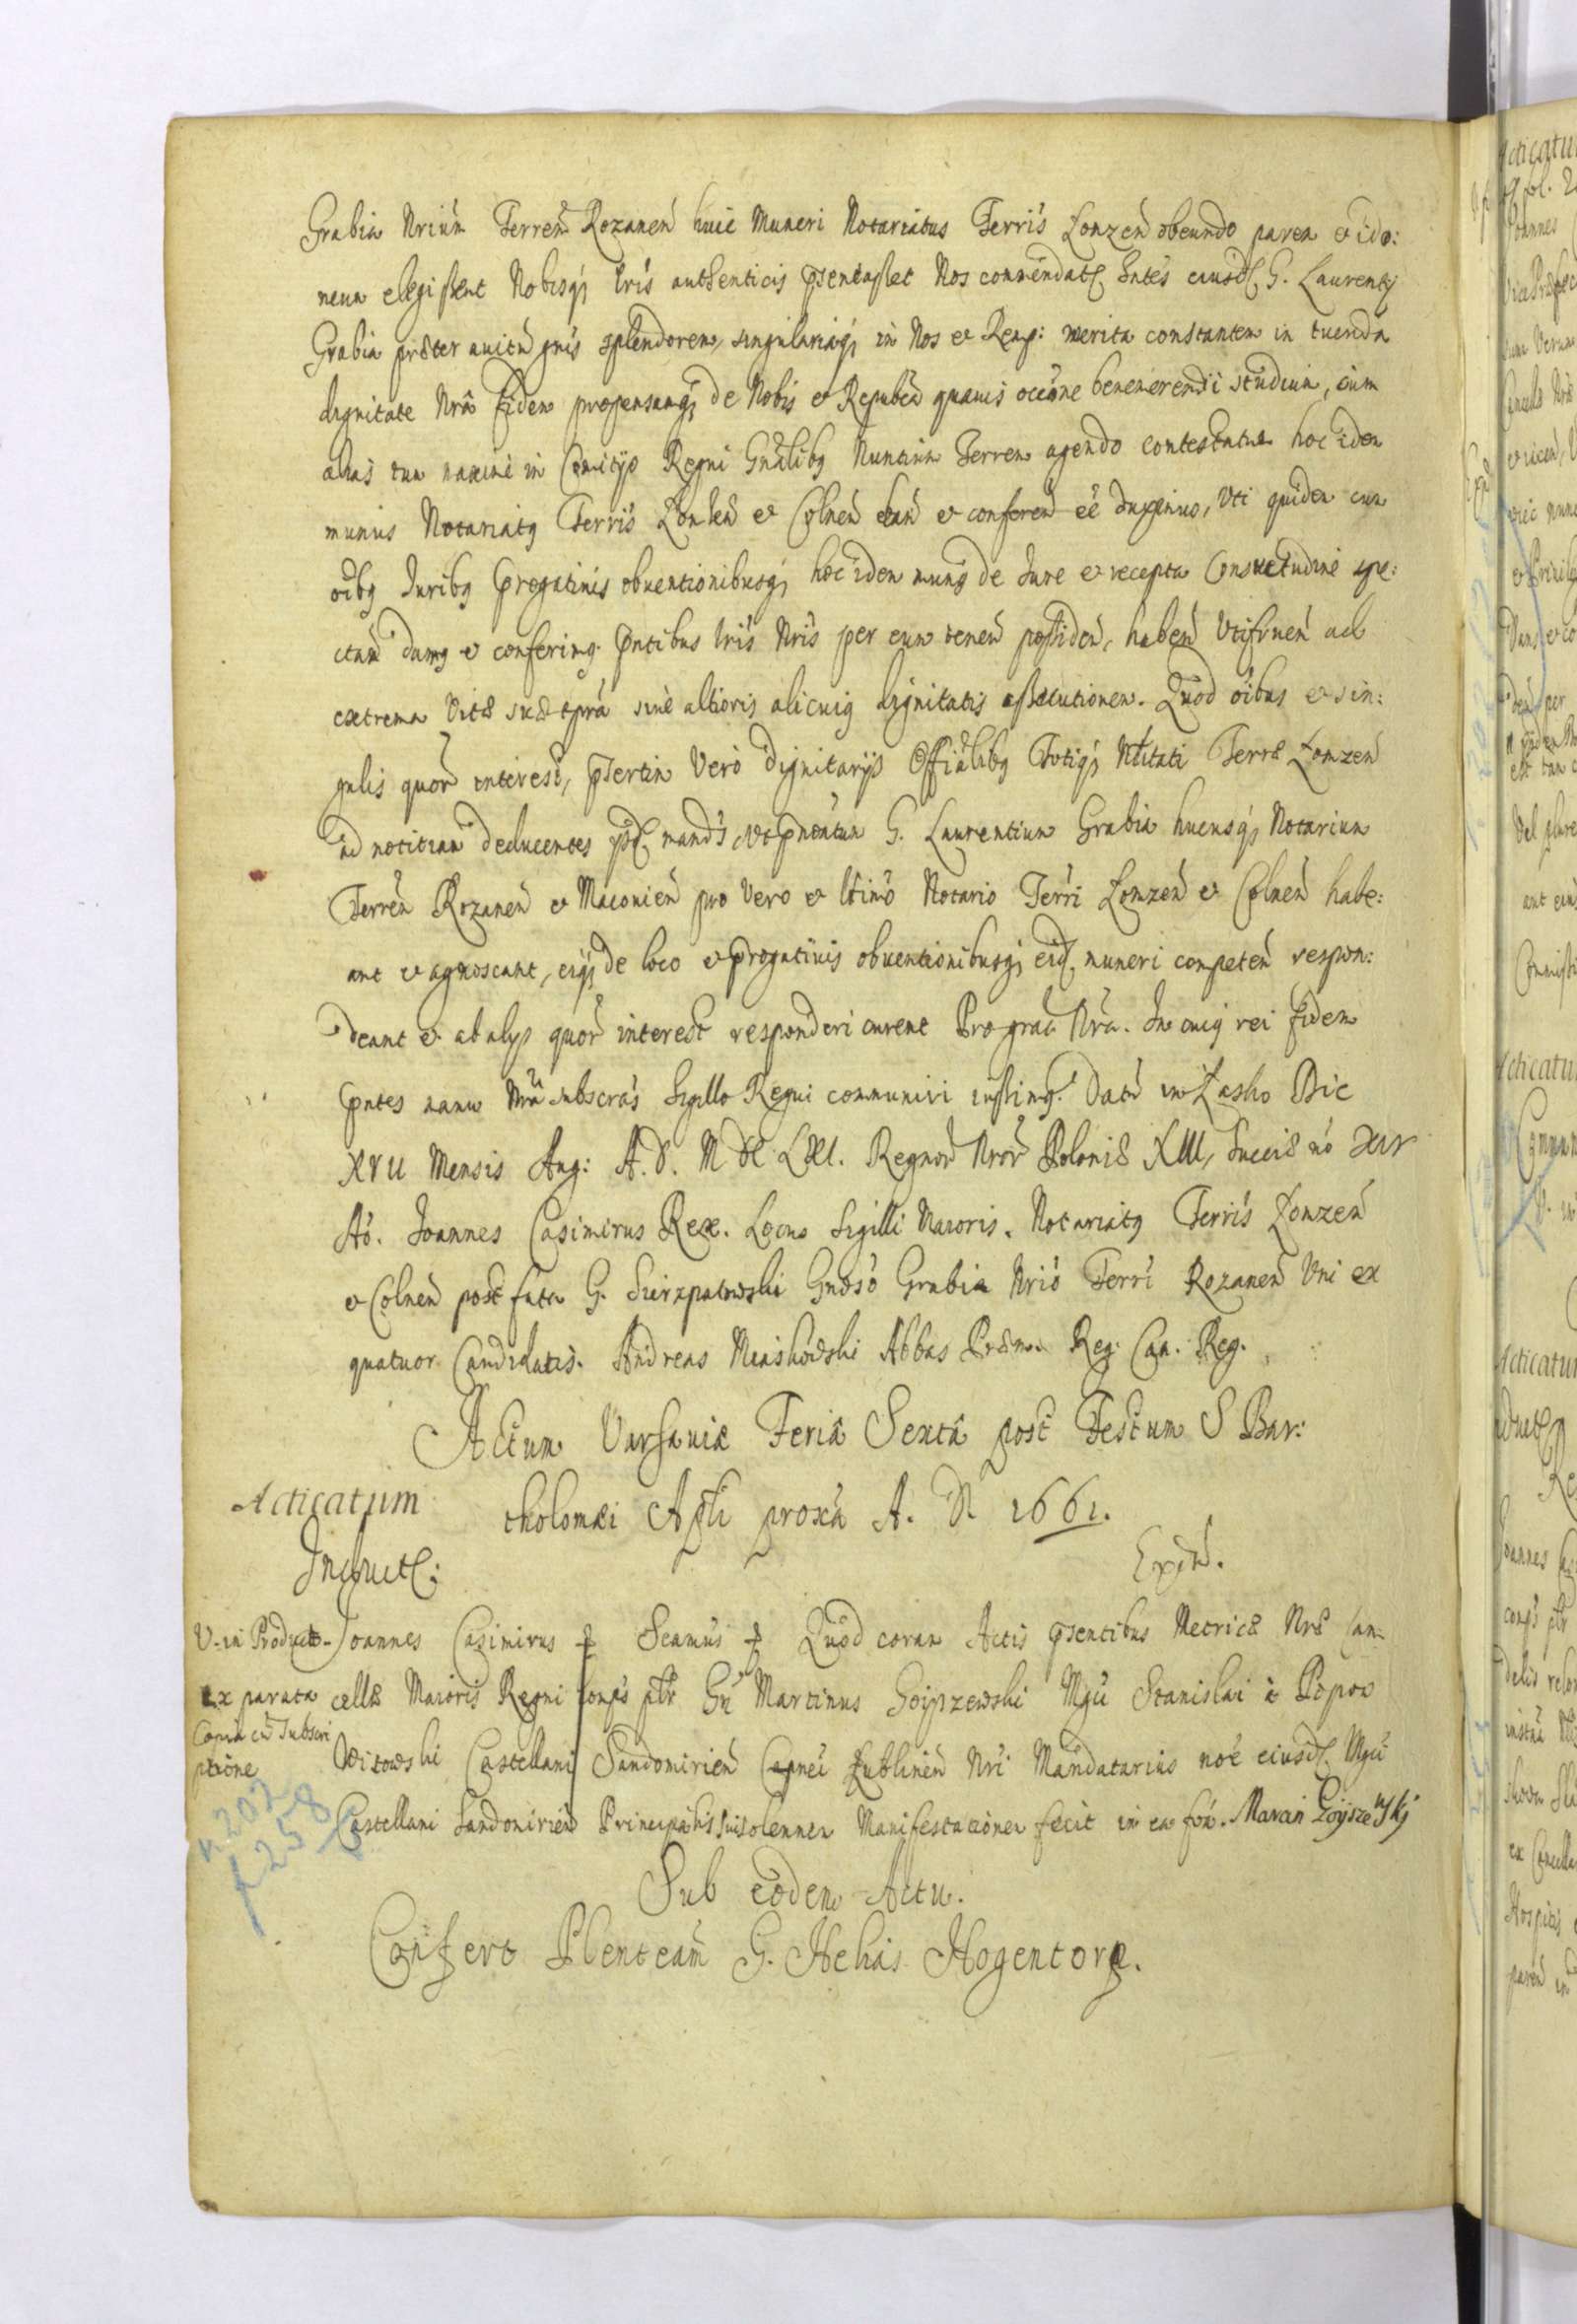 Grabia Nrium Terren Rozanen huic Muneri Notariatus Terris Lomzen obeundo parem et ido:
neum elegissent Nobisq; lris authenticis psentasset Nos commendat. hntes eiusd. G. Laurentij
Grabia præter avitu gnis splendorem, singulariaq; in Nos et Remp: merita constantem in tuenda
dignitate Nra fidem propensamq; de Nobis et Republca quavis occone benemerendi studium, cum
alias tum maxime in Comitijs Regni Gnalibq Nuntium Terrem agendo contestatum hoc idem
munus Notariatq Terris Lomzen et Colnen dan et conferen ee duximus, Uti quidem cum
oibq Juribq Prrogatinis obventionibusq; hoc idem munq de Jure et recepta Consuetudine spe:
ctan damq et conferimq Pntibus lris Nris per eum tenen possiden, haben Utifruen ad
extrema Vitæ suæ tpra sine altioris alicuiq dignitatis assecutionem. Quod oibus et sin:
gulis quor interest, psertim Vero dignitarijs Officialibq Totiq; Nblitati Terræ Lomzen
ad notitiam deducentes ysd. mands ut pnoatum G. Laurentium Grabia hucusq; Notarium
Terren Rozanen et Maconien pro Vero et lttimo Notario Terri Lomzen et Colnen habe:
ant et agnoscant, eiq; de loco et prrogativis obventionibusq; eid. muneri competen respon:
deant et ab alijs quor interest responderi curent Pro graa Nra. In cuiq rei fidem
Pntes manu Nra subscras Sigillo Regni communiri iussimq. Dat in Lasko Die
XVII Mensis Aug: A. D. M DC LXI. Regnor Nror Poloniæ XIII, Sueciæ no XIV
Ao. Joannes Casimirus Rex. Locus Sigilli Maioris. Notariatq Terris Lomzen
et Colnen post fata G. Skierzpatowski Gnoso Grabia Nrio Terri Rozanen Uni ex
quatuor Candidatis. Andreas Miaskowski Abbas Præm. Reg. Can. Reg.
Actum Varsaviæ Feria Sexta post Festum S Bar:
Acticatum
tholomæi Apli proxa A. D 1661.
Induct:
Expd.
V. in Product.
ex parata
Copia cu Subscri
ptione
Joannes Casimirus & Scamus & Quod coram Actis psentibus Metricæ Nræ Can
cellæ Maioris Regni comps pltr Gn Martinus Goyszewski Mgci Stanislai in Popow
Witowski Castellani Sandomirien Capnei Lublinen Nri Mandatarius noe eiusd. Mgci
Castellani Sandomirien Principalis sui solennem Manifestationem fecit in ea foa. Marcin Goyszewskj
n 202
f 258
Sub eodem Actu.
Confert Plenteam G. Helias Hogentorp.